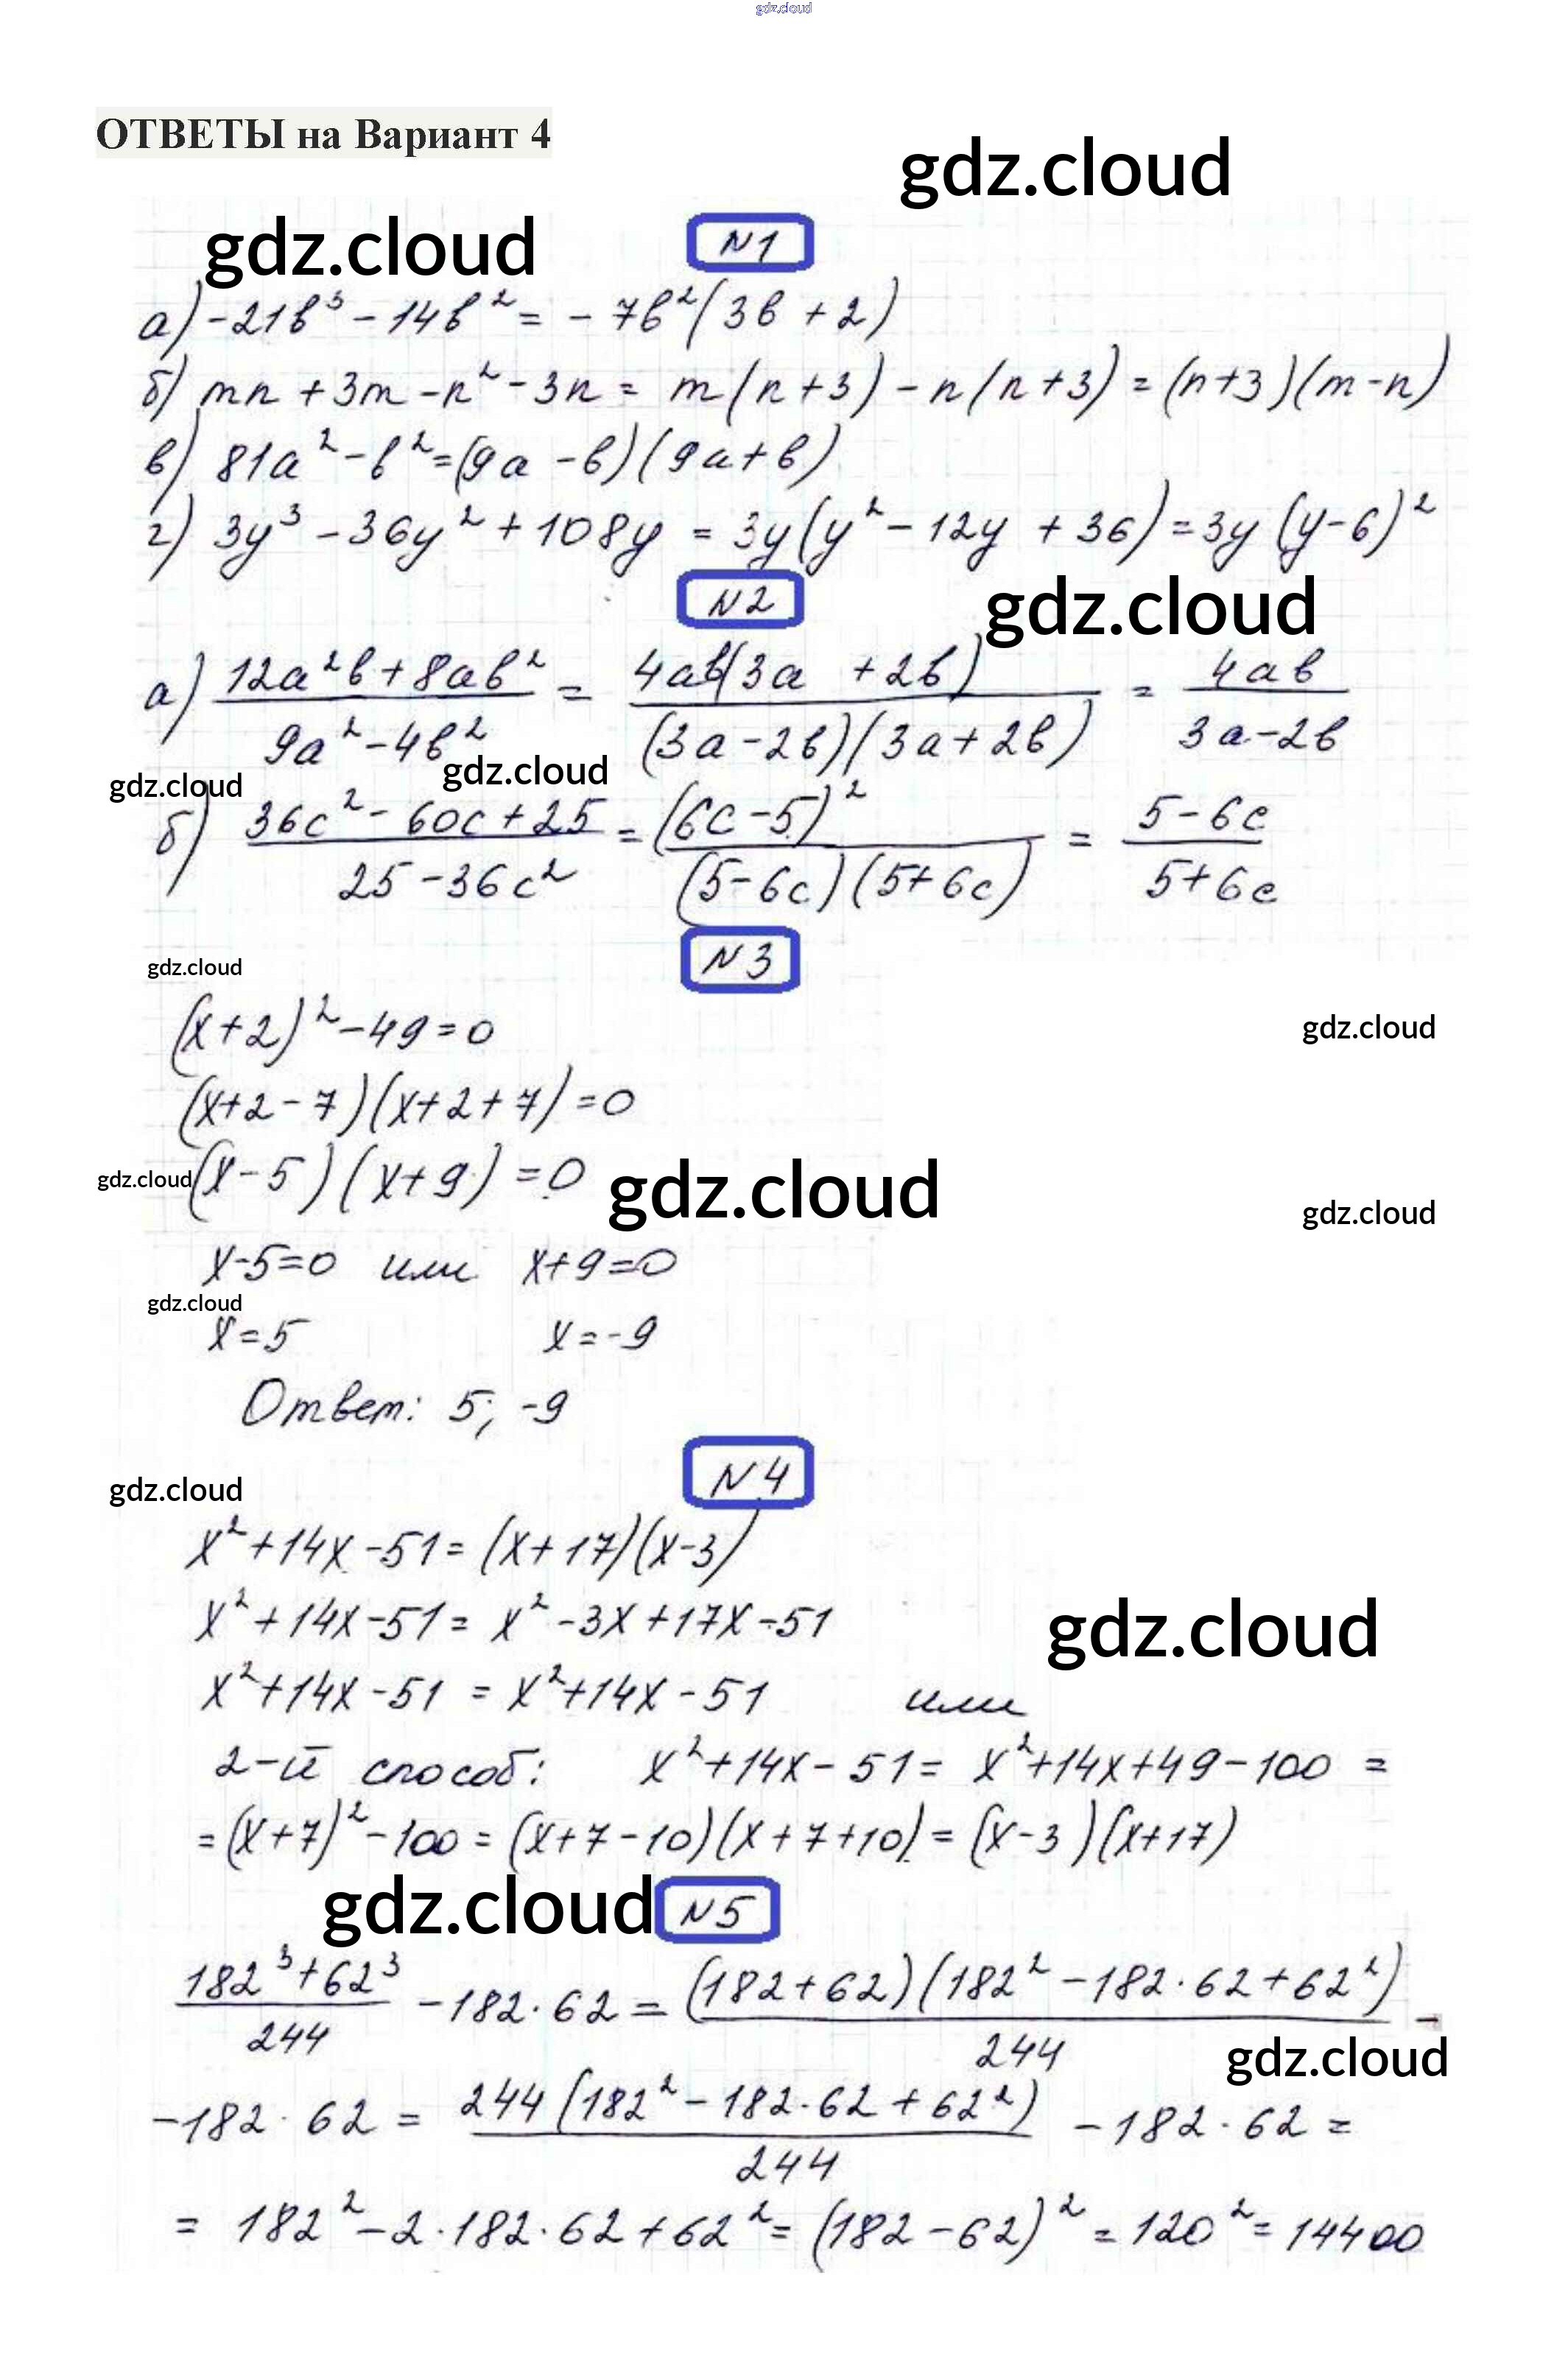 gdz.cloud
ОТВЕТЫ на Вариант 4
gdz.cloud
gdz.cloud
N1
а) -21b³ - 14b² = - 7b²(3b + 2)
б) mn + 3m - n² - 3n = m(n+3) - n(n+3) = (n+3)(m-n)
в) 81a² - b² = (9a - b)(9a + b)
г) 3y³ - 36y² + 108y = 3y(y² - 12y + 36) = 3y(y-6)²
N2
gdz.cloud
а) (12a²b + 8ab²)/(9a² - 4b²) = (4ab(3a + 2b))/((3a - 2b)(3a + 2b)) = (4ab)/(3a - 2b)
gdz.cloud
gdz.cloud
б) (36c² - 60c + 25)/(25 - 36c²) = (6c - 5)²/((5 - 6c)(5 + 6c)) = (5 - 6c)/(5 + 6c)
N3
gdz.cloud
(x+2)² - 49 = 0
gdz.cloud
(x+2-7)(x+2+7) = 0
gdz.cloud
(x-5)(x+9) = 0
gdz.cloud
gdz.cloud
x-5=0 или x+9=0
gdz.cloud
x=5 x=-9
Ответ: 5; -9
N4
gdz.cloud
x² + 14x - 51 = (x+17)(x-3)
x² + 14x - 51 = x² - 3x + 17x - 51
gdz.cloud
x² + 14x - 51 = x² + 14x - 51 или
2-й способ: x² + 14x - 51 = x² + 14x + 49 - 100 =
= (x+7)² - 100 = (x+7-10)(x+7+10) = (x-3)(x+17)
gdz.cloud
N5
(182³ + 62³)/244 - 182·62 = ((182+62)(182² - 182·62 + 62²))/244 -
gdz.cloud
- 182·62 = (244(182² - 182·62 + 62²))/244 - 182·62 =
= 182² - 2·182·62 + 62² = (182 - 62)² = 120² = 14400